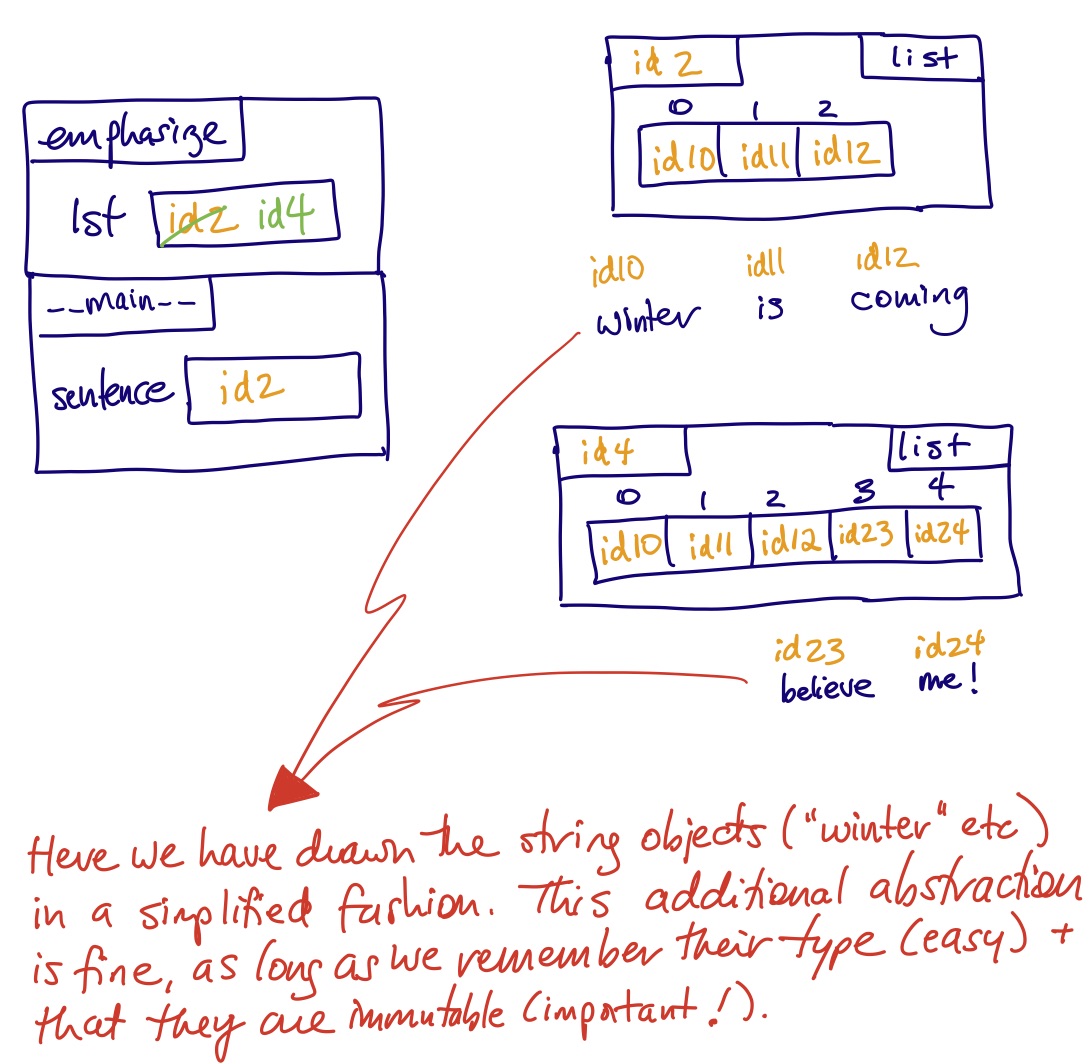 emphasize
lst id2 id4
__main__
sentence id2
id2 list
0 1 2
id10 id11 id12
id10 id11 id12
winter is coming
id4 list
0 1 2 3 4
id10 id11 id12 id23 id24
id23 id24
believe me!
Here we have drawn the string objects ("winter" etc)
in a simplified fashion. This additional abstraction
is fine, as long as we remember their type (easy) +
that they are immutable (important!).